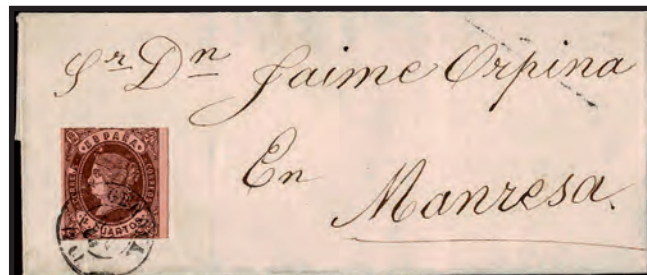 Sr Dn Jaime Orpina
En
Manresa.
ESPAÑA
CORREOS
4 CUARTOS